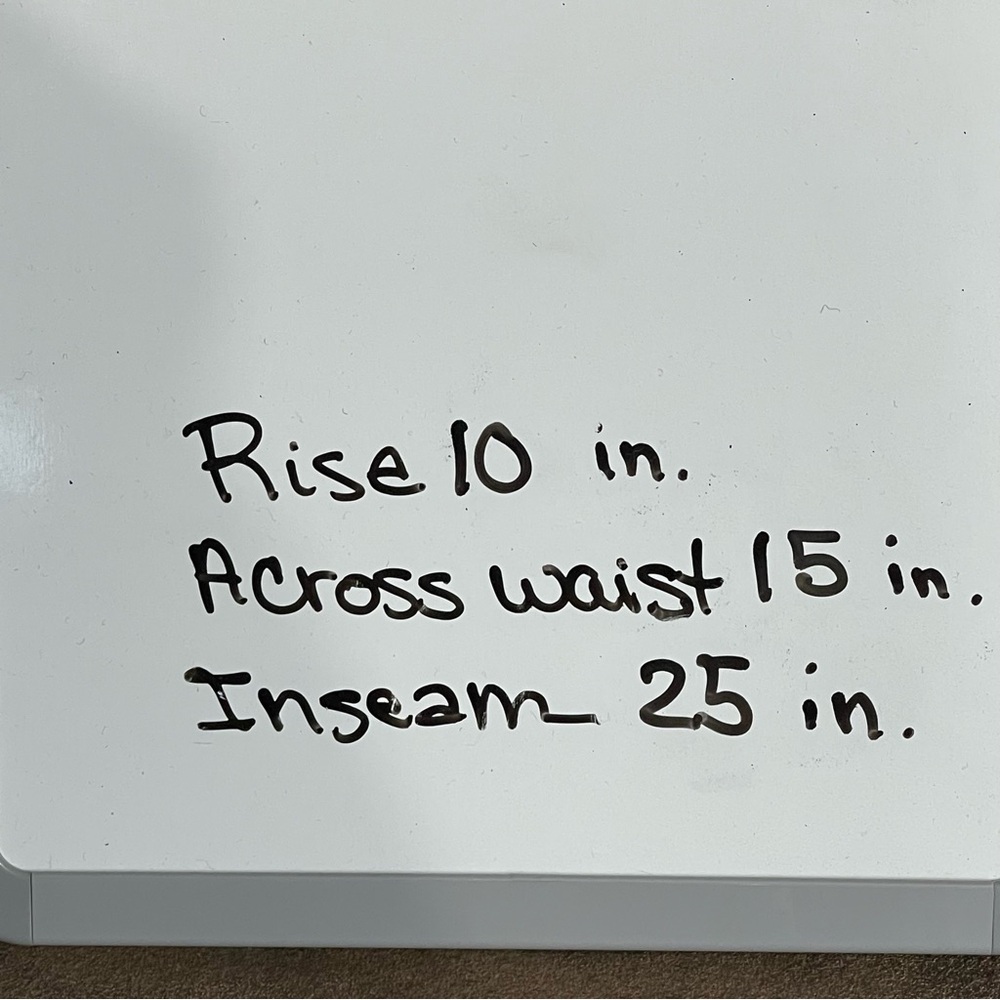 Rise 10 in.
Across waist 15 in.
Inseam 25 in.